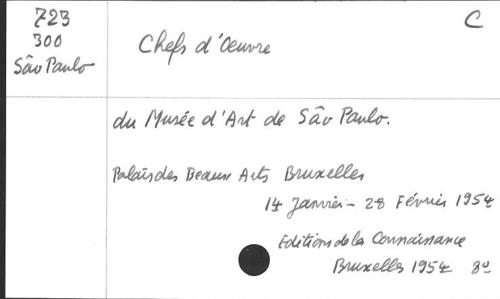 723
300
São Paulo
C
Chefs d'Oeuvre
du Musée d'Art de São Paulo.
Palais des Beaux Arts Bruxelles
14 Janvier - 28 Février 1954
Editions de la Connaissance
Bruxelles 1954 8º